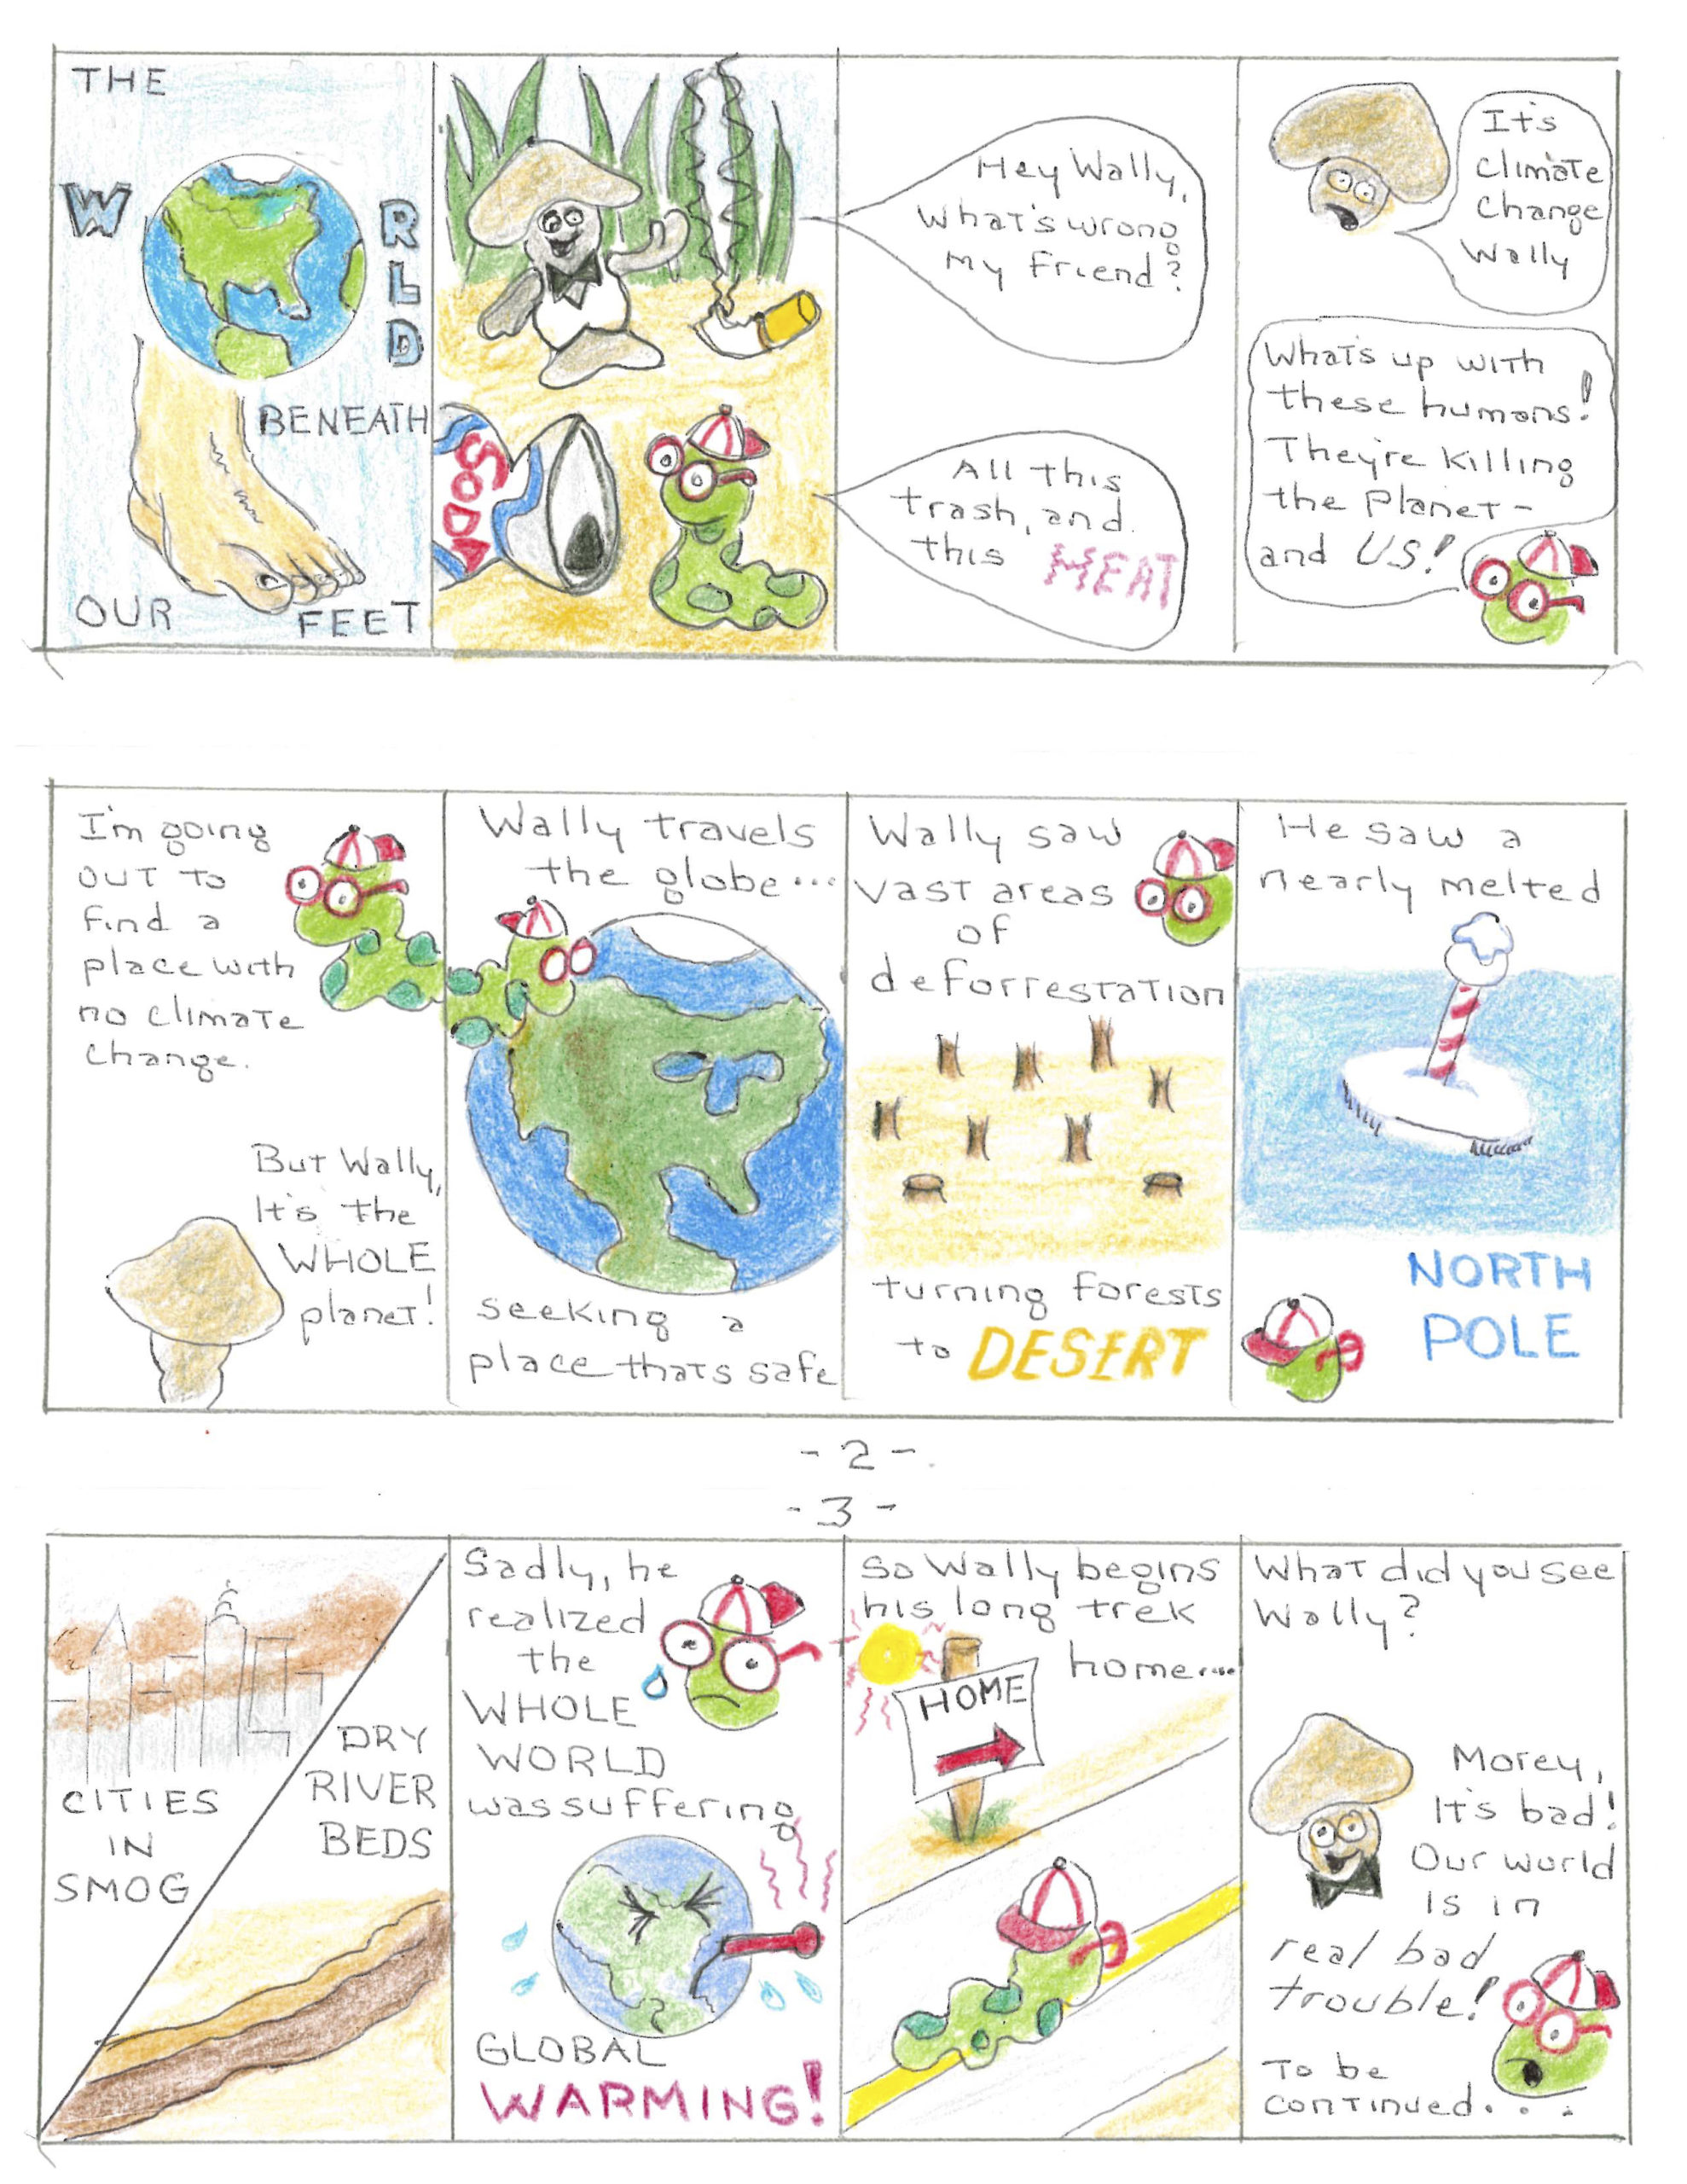 THE
W RLD
BENEATH
OUR FEET
SODA
Hey Wally,
What's wrong
My Friend?
All this
trash, and
this HEAT
It's
Climate
Change
Wally
What's up with
these humans!
They're Killing
the Planet-
and US!
I'm going
out to
find a
place with
no climate
change.
But Wally,
It's the
WHOLE
planet!
Wally travels
the globe...
seeking a
place thats safe
Wally saw
vast areas
of
deforrestation
turning forests
to DESERT
He saw a
nearly melted
NORTH
POLE
-2-
-3-
CITIES
IN
SMOG
DRY
RIVER
BEDS
Sadly, he
realized
the
WHOLE
WORLD
was suffering
GLOBAL
WARMING!
So Wally begins
his long trek
home....
HOME
What did you see
Wally?
Morey,
It's bad!
Our world
is in
real bad
trouble!
To be
continued...